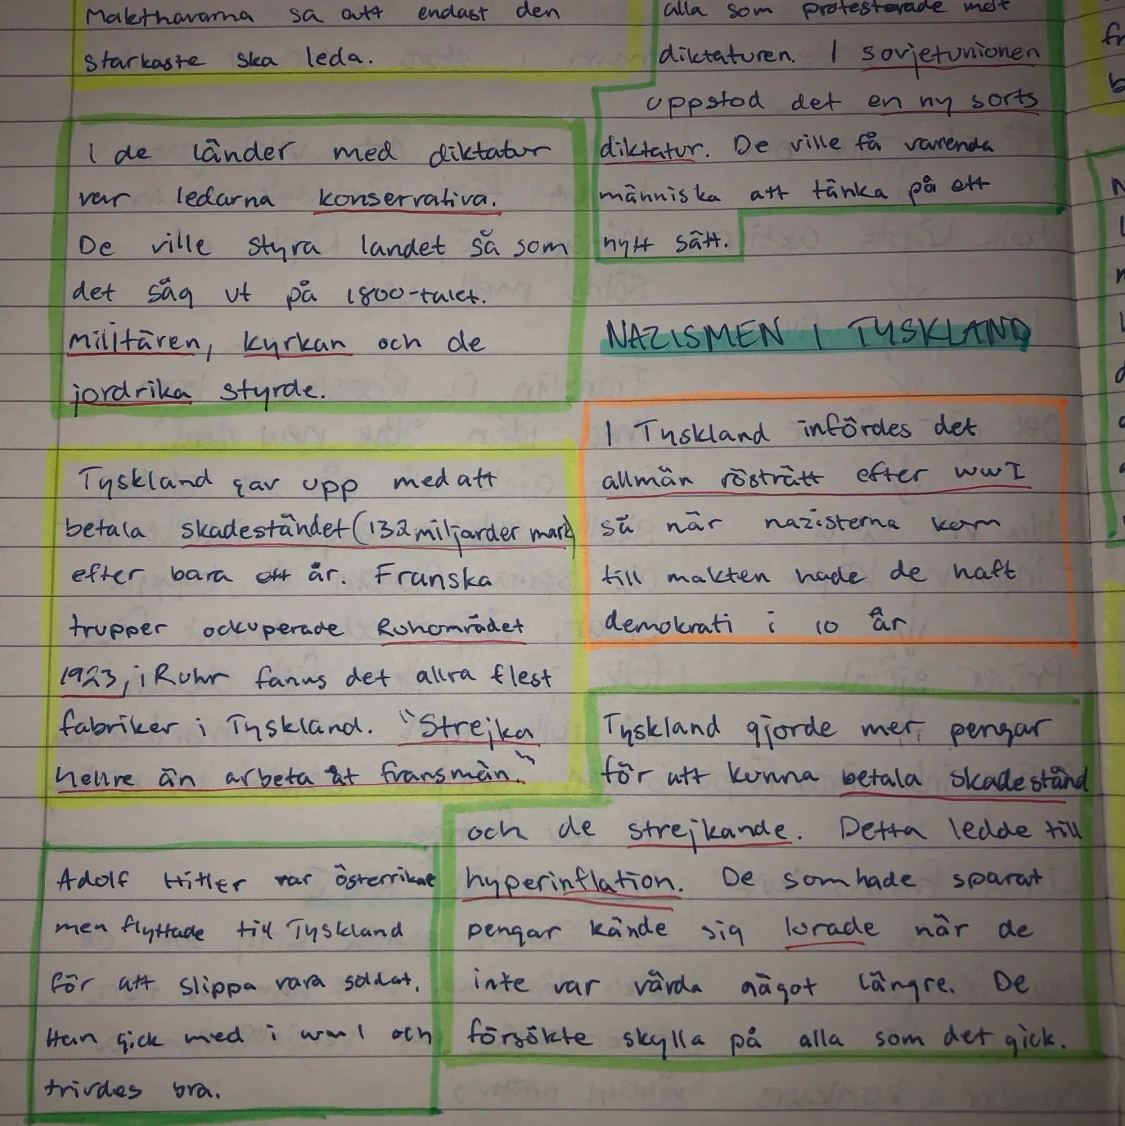 Makthavarna sa att endast den
starkaste ska leda.
I de länder med diktatur
var ledarna konservativa.
De ville styra landet så som
det såg ut på 1800-talet.
militären, kyrkan och de
jordrika styrde.
Tyskland gav upp med att
betala skadeståndet (132 miljarder mark)
efter bara ett år. Franska
trupper ockuperade Ruhområdet
1923, i Ruhr fanns det allra flest
fabriker i Tyskland. "Strejka
hellre än arbeta åt fransmän."
Adolf Hitler var österrikare
men flyttade till Tyskland
för att slippa vara soldat.
Han gick med i ww1 och
trivdes bra.
alla som protesterade mot
diktaturen. I sovjetunionen
uppstod det en ny sorts
diktatur. De ville få varenda
människa att tänka på ett
nytt sätt.
NAZISMEN I TYSKLAND
I Tyskland infördes det
allmän rösträtt efter WWI
så när nazisterna kom
till makten hade de haft
demokrati i 10 år
Tyskland gjorde mer pengar
för att kunna betala skadestånd
och de strejkande. Detta ledde till
hyperinflation. De som hade sparat
pengar kände sig lurade när de
inte var värda något längre. De
försökte skylla på alla som det gick.